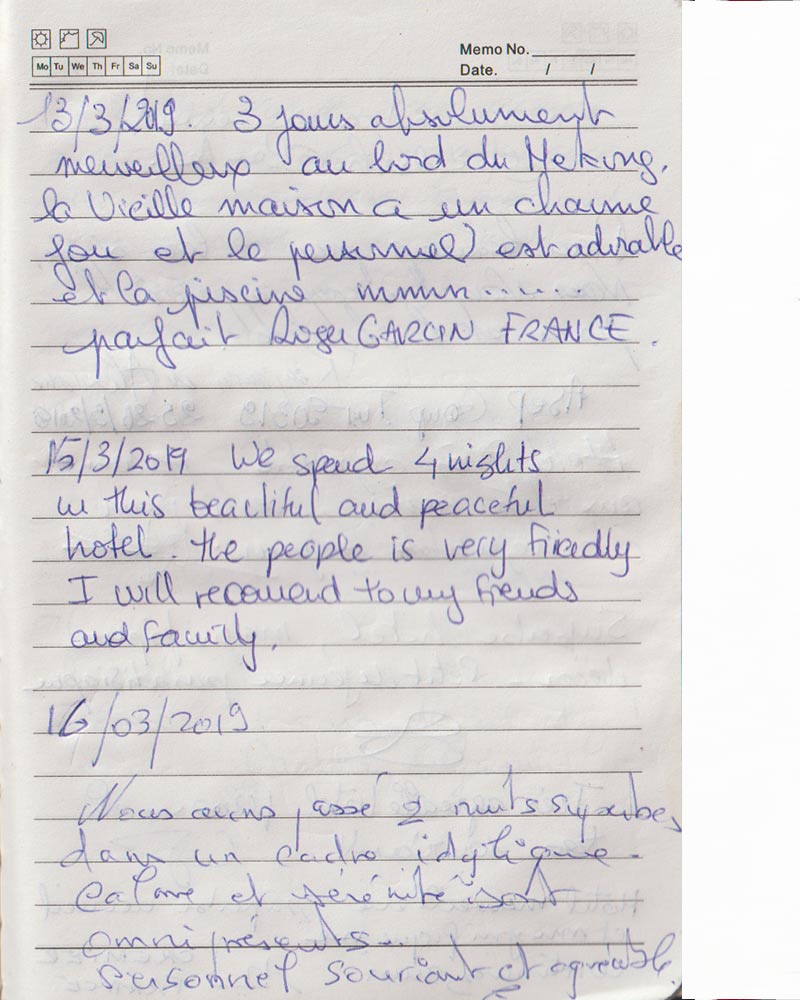 Memo No.
Mo Tu We Th Fr Sa Su
Date. / /
13/3/2019. 3 jours absolument
merveilleux au bord du Mekong,
la Vieille maison a un charme
fou et le personnel est adorable
et la piscine mmm......
parfait Roger GARCIN FRANCE.
15/3/2019 We spend 4 nights
in this beautiful and peaceful
hotel. the people is very friendly
I will recomend to my friends
and family.
16/03/2019
Nous avons passé 2 nuits superbes,
dans un cadre idyllique.
Calme et sérénité sont
omniprésents..
Personnel souriant et agréable.